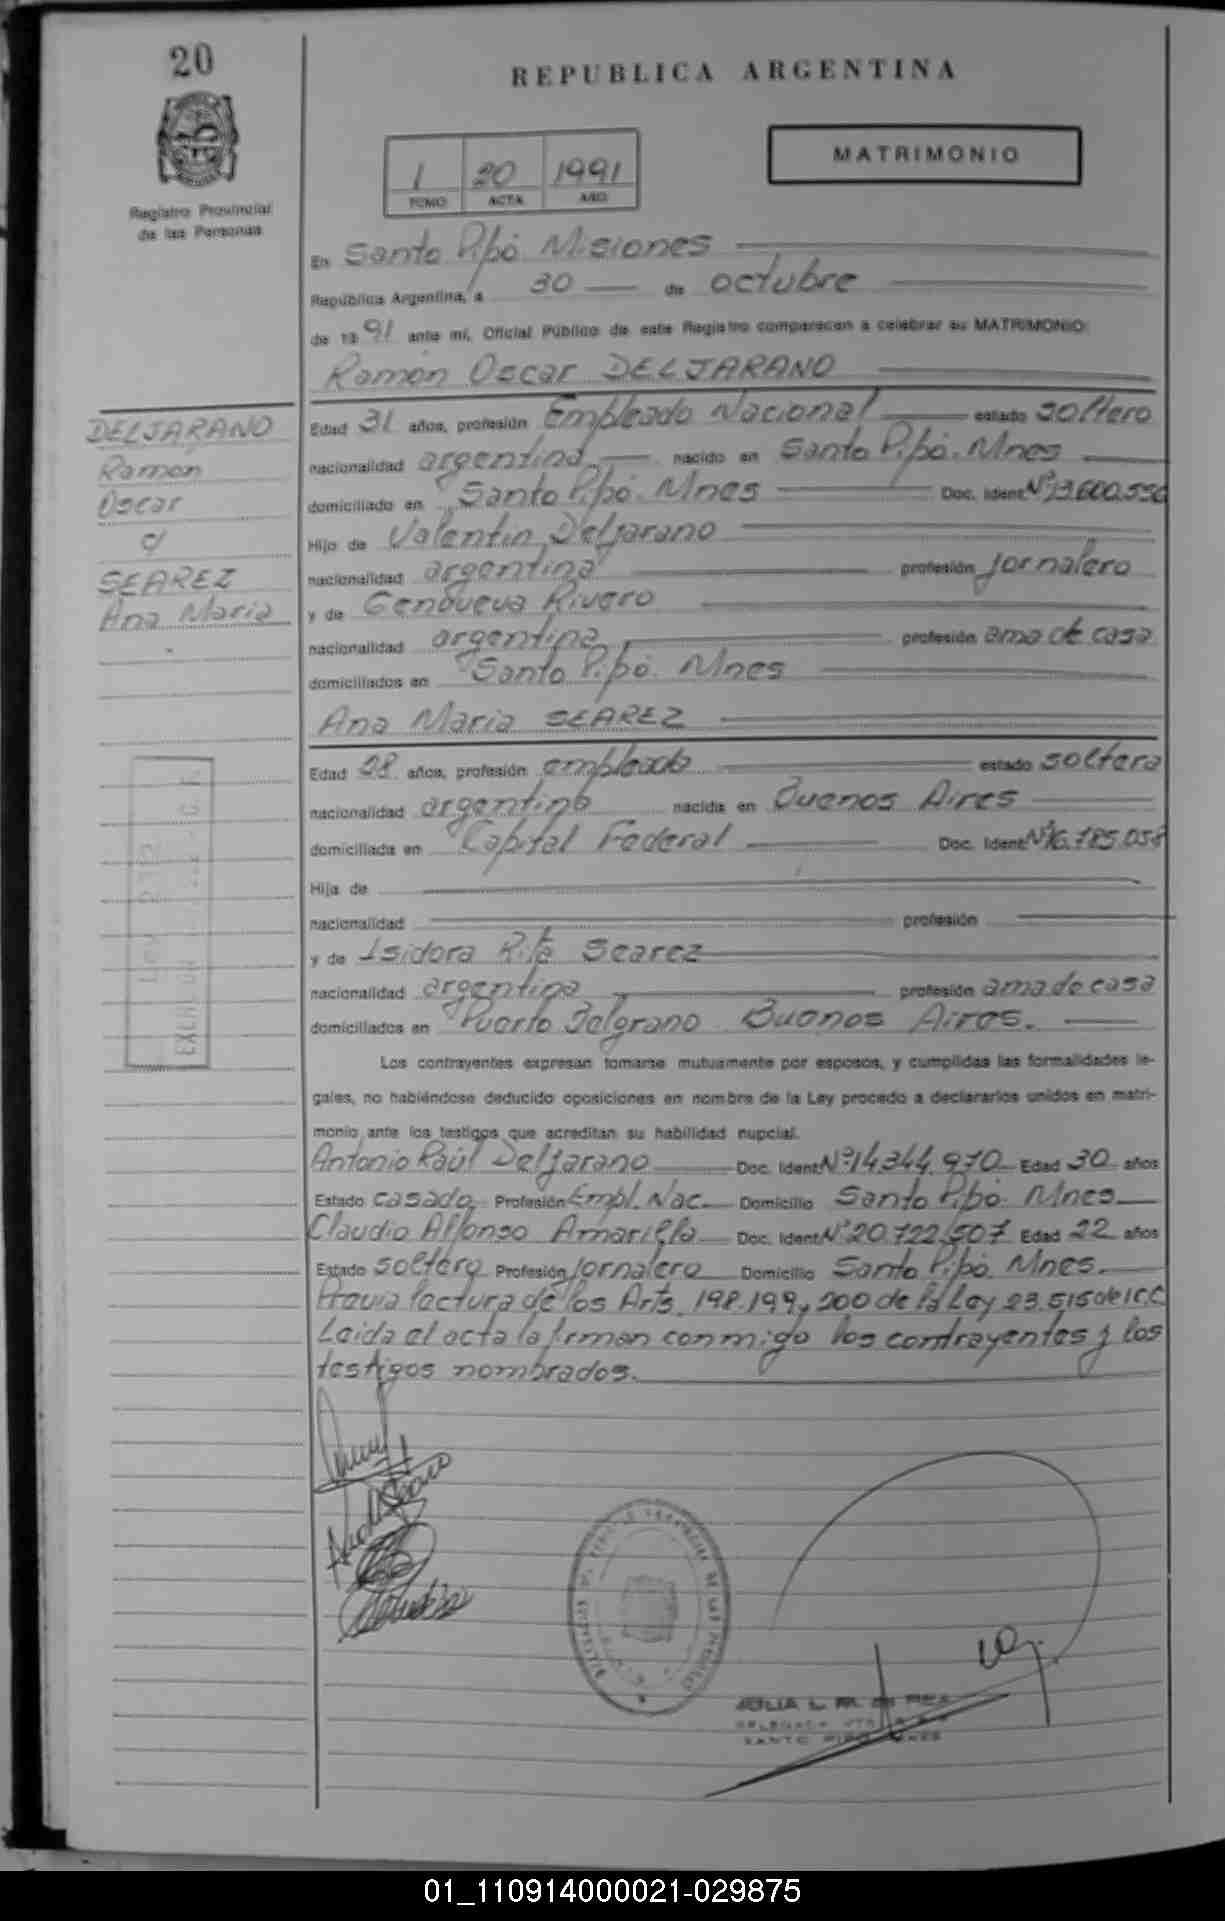 20
REPUBLICA ARGENTINA
Registro Provincial
de las Personas
1 20 1991
TOMO ACTA AÑO
MATRIMONIO
En Santo Pipó Misiones
República Argentina, a 30 de octubre
de 1991 ante mí, Oficial Público de este Registro comparecen a celebrar su MATRIMONIO:
Ramón Oscar DELJARANO
DELJARANO
Ramon
Oscar
c/
SEAREZ
Ana Maria
Edad 31 años, profesión Empleado Nacional estado soltero
nacionalidad argentina nacido en Santo Pipó. Mnes
domiciliado en Santo Pipó. Mnes Doc. Ident. Nº13.600.556
Hijo de Valentin Deljarano
nacionalidad argentina profesión jornalero
y de Genoveva Rivero
nacionalidad argentina profesión ama de casa
domiciliados en Santo Pipó. Mnes
Ana Maria SEAREZ
Edad 28 años, profesión empleada estado soltera
nacionalidad argentina nacida en Buenos Aires
domiciliada en Capital Federal Doc. Ident. Nº16.785.058
Hija de
nacionalidad profesión
y de Isidora Rita Searez
nacionalidad argentina profesión ama de casa
domiciliados en Puerto Belgrano Buenos Aires.
Los contrayentes expresan tomarse mutuamente por esposos, y cumplidas las formalidades le-
gales, no habiéndose deducido oposiciones en nombre de la Ley procedo a declararlos unidos en matri-
monio ante los testigos que acreditan su habilidad nupcial.
Antonio Raúl Deljarano Doc. Ident. Nº14.344.970 Edad 30 años
Estado casado Profesión Empl. Nac. Domicilio Santo Pipó Mnes
Claudio Alfonso Amarilla Doc. Ident. Nº20.722.507 Edad 22 años
Estado soltero Profesión jornalero Domicilio Santo Pipó Mnes.
Previa lectura de los Arts. 198.199 y 200 de la Ley 23.515 de C.C
Leida el acta la firman conmigo los contrayentes y los
testigos nombrados.
JULIA L. M. DE REX
SANTO PIPO MNES
01_110914000021-029875